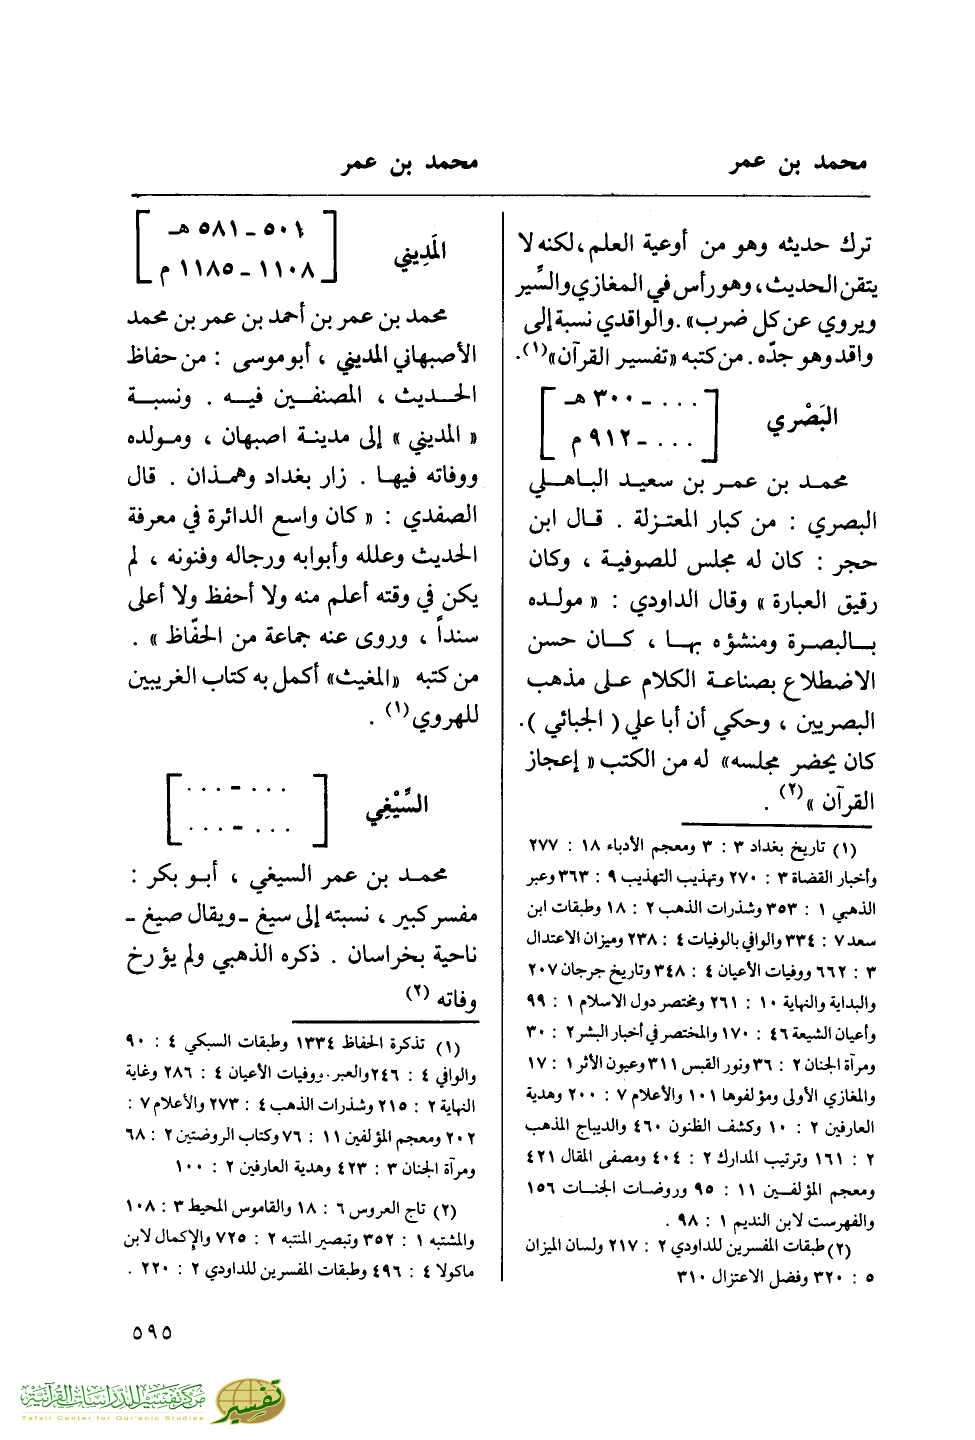 محمد بن عمر
محمد بن عمر
ترك حديثه وهو من أوعية العلم، لكنه لا
يتقن الحديث، وهو رأس في المغازي والسِّير
ويروي عن كل ضرب». والواقدي نسبة إلى
واقد وهو جدّه. من كتبه «تفسير القرآن»(١).
البَصْري
[... - ٣٠٠ هـ
... - ٩١٢ م]
محمد بن عمر بن سعيد الباهلي
البصري : من كبار المعتزلة . قال ابن
حجر : كان له مجلس للصوفية ، وكان
رقيق العبارة » وقال الداودي : « مولده
بالبصرة ومنشؤه بها ، كان حسن
الاضطلاع بصناعة الكلام على مذهب
البصريين ، وحكي أن أبا علي ( الجبائي ).
كان يحضر مجلسه» له من الكتب « إعجاز
القرآن »(٢) .
(١) تاريخ بغداد ٣ : ٣ ومعجم الأدباء ١٨ : ٢٧٧
وأخبار القضاة ٣ : ٢٧٠ وتهذيب التهذيب ٩ : ٣٦٣ وعبر
الذهبي ١ : ٣٥٣ وشذرات الذهب ٢ : ١٨ وطبقات ابن
سعد ٧ : ٣٣٤ والوافي بالوفيات ٤ : ٢٣٨ وميزان الاعتدال
٣ : ٦٦٢ ووفيات الأعيان ٤ : ٣٤٨ وتاريخ جرجان ٢٠٧
والبداية والنهاية ١٠ : ٢٦١ ومختصر دول الاسلام ١ : ٩٩
وأعيان الشيعة ٤٦ : ١٧٠ والمختصر في أخبار البشر ٢ : ٣٠
ومرآة الجنان ٢ : ٣٦ ونور القبس ٣١١ وعيون الأثر ١ : ١٧
والمغازي الأولى ومؤلفوها ١٠١ والأعلام ٧ : ٢٠٠ وهدية
العارفين ٢ : ١٠ وكشف الظنون ٤٦٠ والديباج المذهب
٢ : ١٦١ وترتيب المدارك ٢ : ٤٠٤ ومصفى المقال ٤٢١
ومعجم المؤلفين ١١ : ٩٥ وروضات الجنات ١٥٦
والفهرست لابن النديم ١ : ٩٨ .
(٢) طبقات المفسرين للداودي ٢ : ٢١٧ ولسان الميزان
٥ : ٣٢٠ وفضل الاعتزال ٣١٠
المَدِيني
[٥٠١ - ٥٨١ هـ
١١٠٨ - ١١٨٥ م]
محمد بن عمر بن أحمد بن عمر بن محمد
الأصبهاني المديني ، أبو موسى : من حفاظ
الحديث ، المصنفين فيه . ونسبة
« المديني » إلى مدينة اصبهان ، ومولده
ووفاته فيها . زار بغداد وهمذان . قال
الصفدي : « كان واسع الدائرة في معرفة
الحديث وعلله وأبوابه ورجاله وفنونه ، لم
يكن في وقته أعلم منه ولا أحفظ ولا أعلى
سنداً ، وروى عنه جماعة من الحفّاظ » .
من كتبه «المغيث» أكمل به كتاب الغريبين
للهروي(١) .
السِّيْغِي
[... - ...
... - ...]
محمد بن عمر السيغي ، أبو بكر :
مفسر كبير ، نسبته إلى سيغ - ويقال صيغ -
ناحية بخراسان . ذكره الذهبي ولم يؤرخ
وفاته (٢)
(١) تذكرة الحفاظ ١٣٣٤ وطبقات السبكي ٤ : ٩٠
والوافي ٤ : ٢٤٦ والعبر. ووفيات الأعيان ٤ : ٢٨٦ وغاية
النهاية ٢ : ٢١٥ وشذرات الذهب ٤ : ٢٧٣ والأعلام ٧ :
٢٠٢ ومعجم المؤلفين ١١ : ٧٦ وكتاب الروضتين ٢ : ٦٨
ومرآة الجنان ٣ : ٤٢٣ وهدية العارفين ٢ : ١٠٠
(٢) تاج العروس ٦ : ١٨ والقاموس المحيط ٣ : ١٠٨
والمشتبه ١ : ٣٥٢ وتبصير المنتبه ٢ : ٧٢٥ والإكمال لابن
ماكولا ٤ : ٤٩٦ وطبقات المفسرين للداودي ٢ : ٢٢٠ .
٥٩٥
مركز تفسير للدراسات القرآنية
Tafsir Center for Qur'anic Studies
تفسير